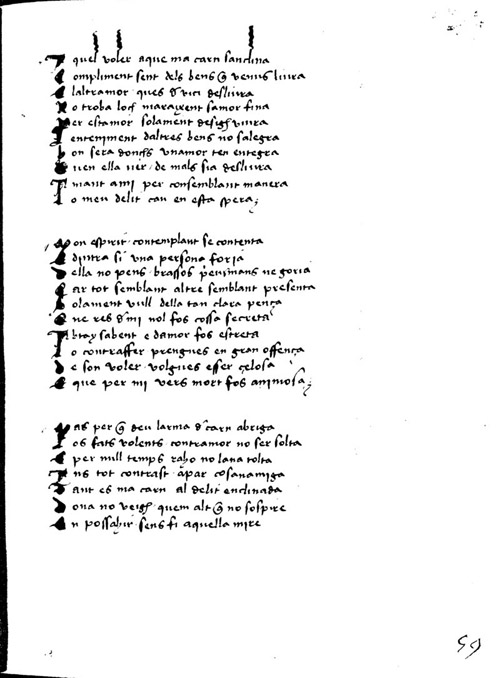 Aquel voler aque ma carn sanclina
Compliment sent dels bens q̃ venus liura
Elaltramor · ques d'vici desliura
No troba loch maraxent samor fina
Per estamor solament desig viura
E enteniment daltres bens no salegra
hon sera donchs vnamor ten entegra
Quen ella vier · de mals sia desliura
Amant a mi per consemblant manera
Lo meu delit cau en esta spera

Mon espirit contemplant se contenta
E dintra si vna persona forja
Della no pens · brassos peus mans ne gorja
Car tot semblant altre semblant presenta
Solament vull della tan clara pença
Que res d'mi nol fos cossa secreta
Abtay sabent e damor fos estreta
Lo contraffer prengues en gran offença
De son voler volgues esser çelosa
E que per mi vers mort fos animosa

Mas per q̃ deu larma d'carn abriga
Los fats volents contramor no ser solta
E per null temps raho no lana tolta
Ans tot contrast apar cosanamiga
Tant es ma carn al delit enclinada
Dona no veig quem alt q̃ no sospire
En possahir · sens fi aquella mire
59